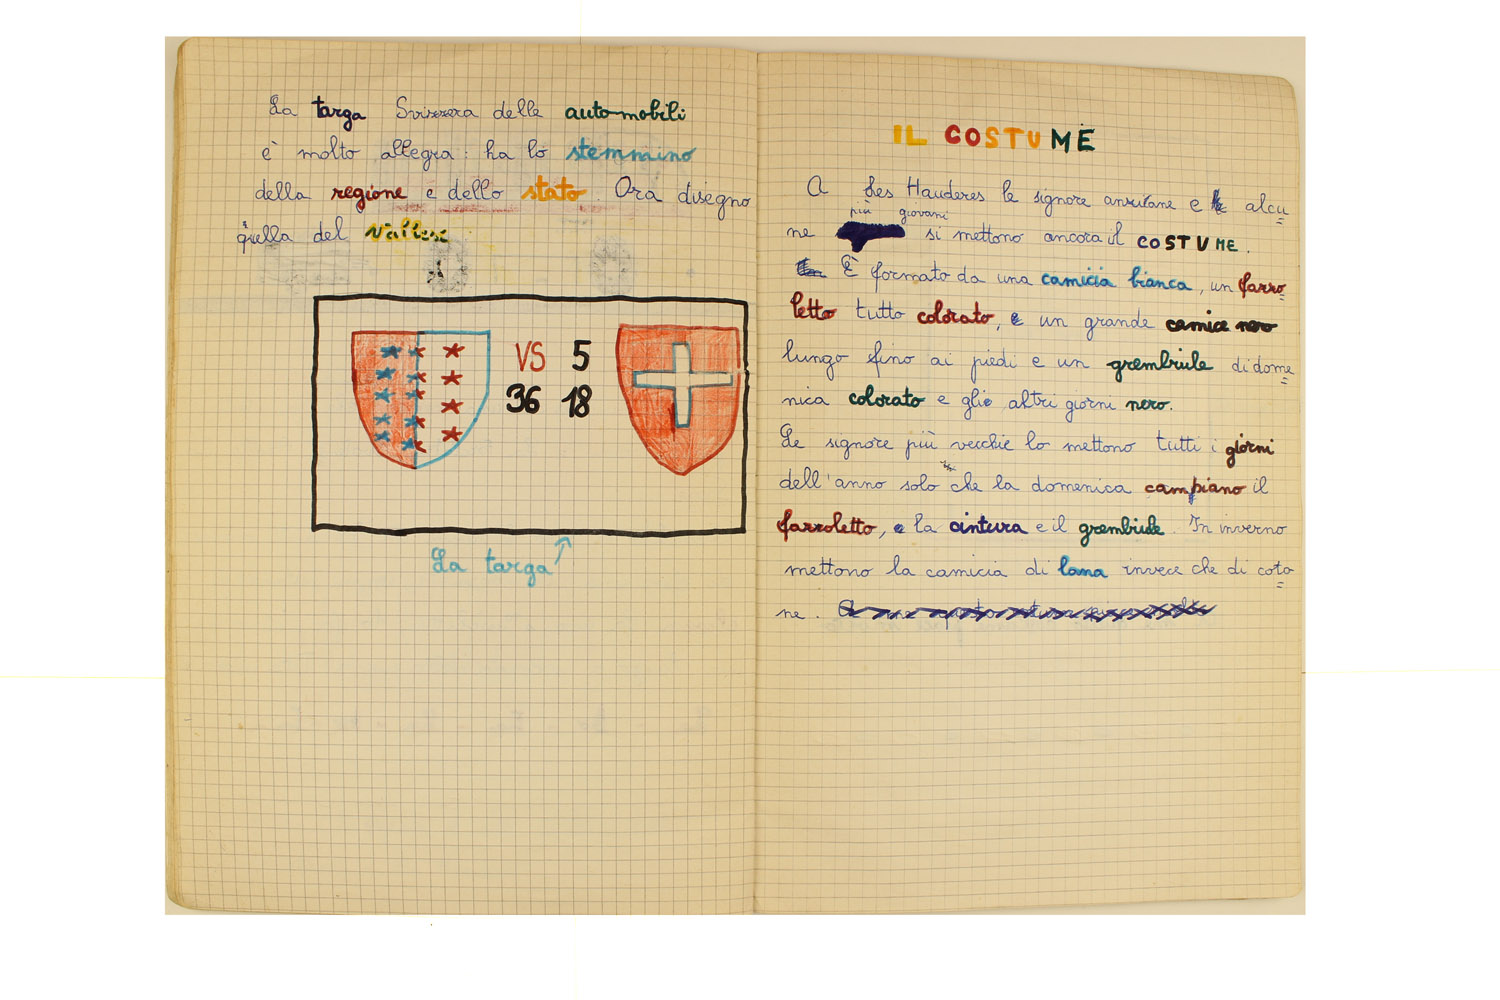 La targa Svizzera delle automobili
è molto allegra: ha lo stemmino
della regione e dello stato. Ora disegno
quella del Vallese
VS 5
36 18
La targa
IL COSTUME
A Les Hauderes le signore anziane e alcu
più giovani
ne si mettono ancora il COSTUME.
È formato da una camicia bianca, un fazzo
letto tutto colorato, e un grande camice nero
lungo fino ai piedi e un grembiule di dome
nica colorato e gli altri giorni nero.
Le signore più vecchie lo mettono tutti i giorni
dell'anno solo che la domenica campiano il
fazzoletto, e la cintura e il grembiule. In inverno
mettono la camicia di lana invece che di coto
ne.